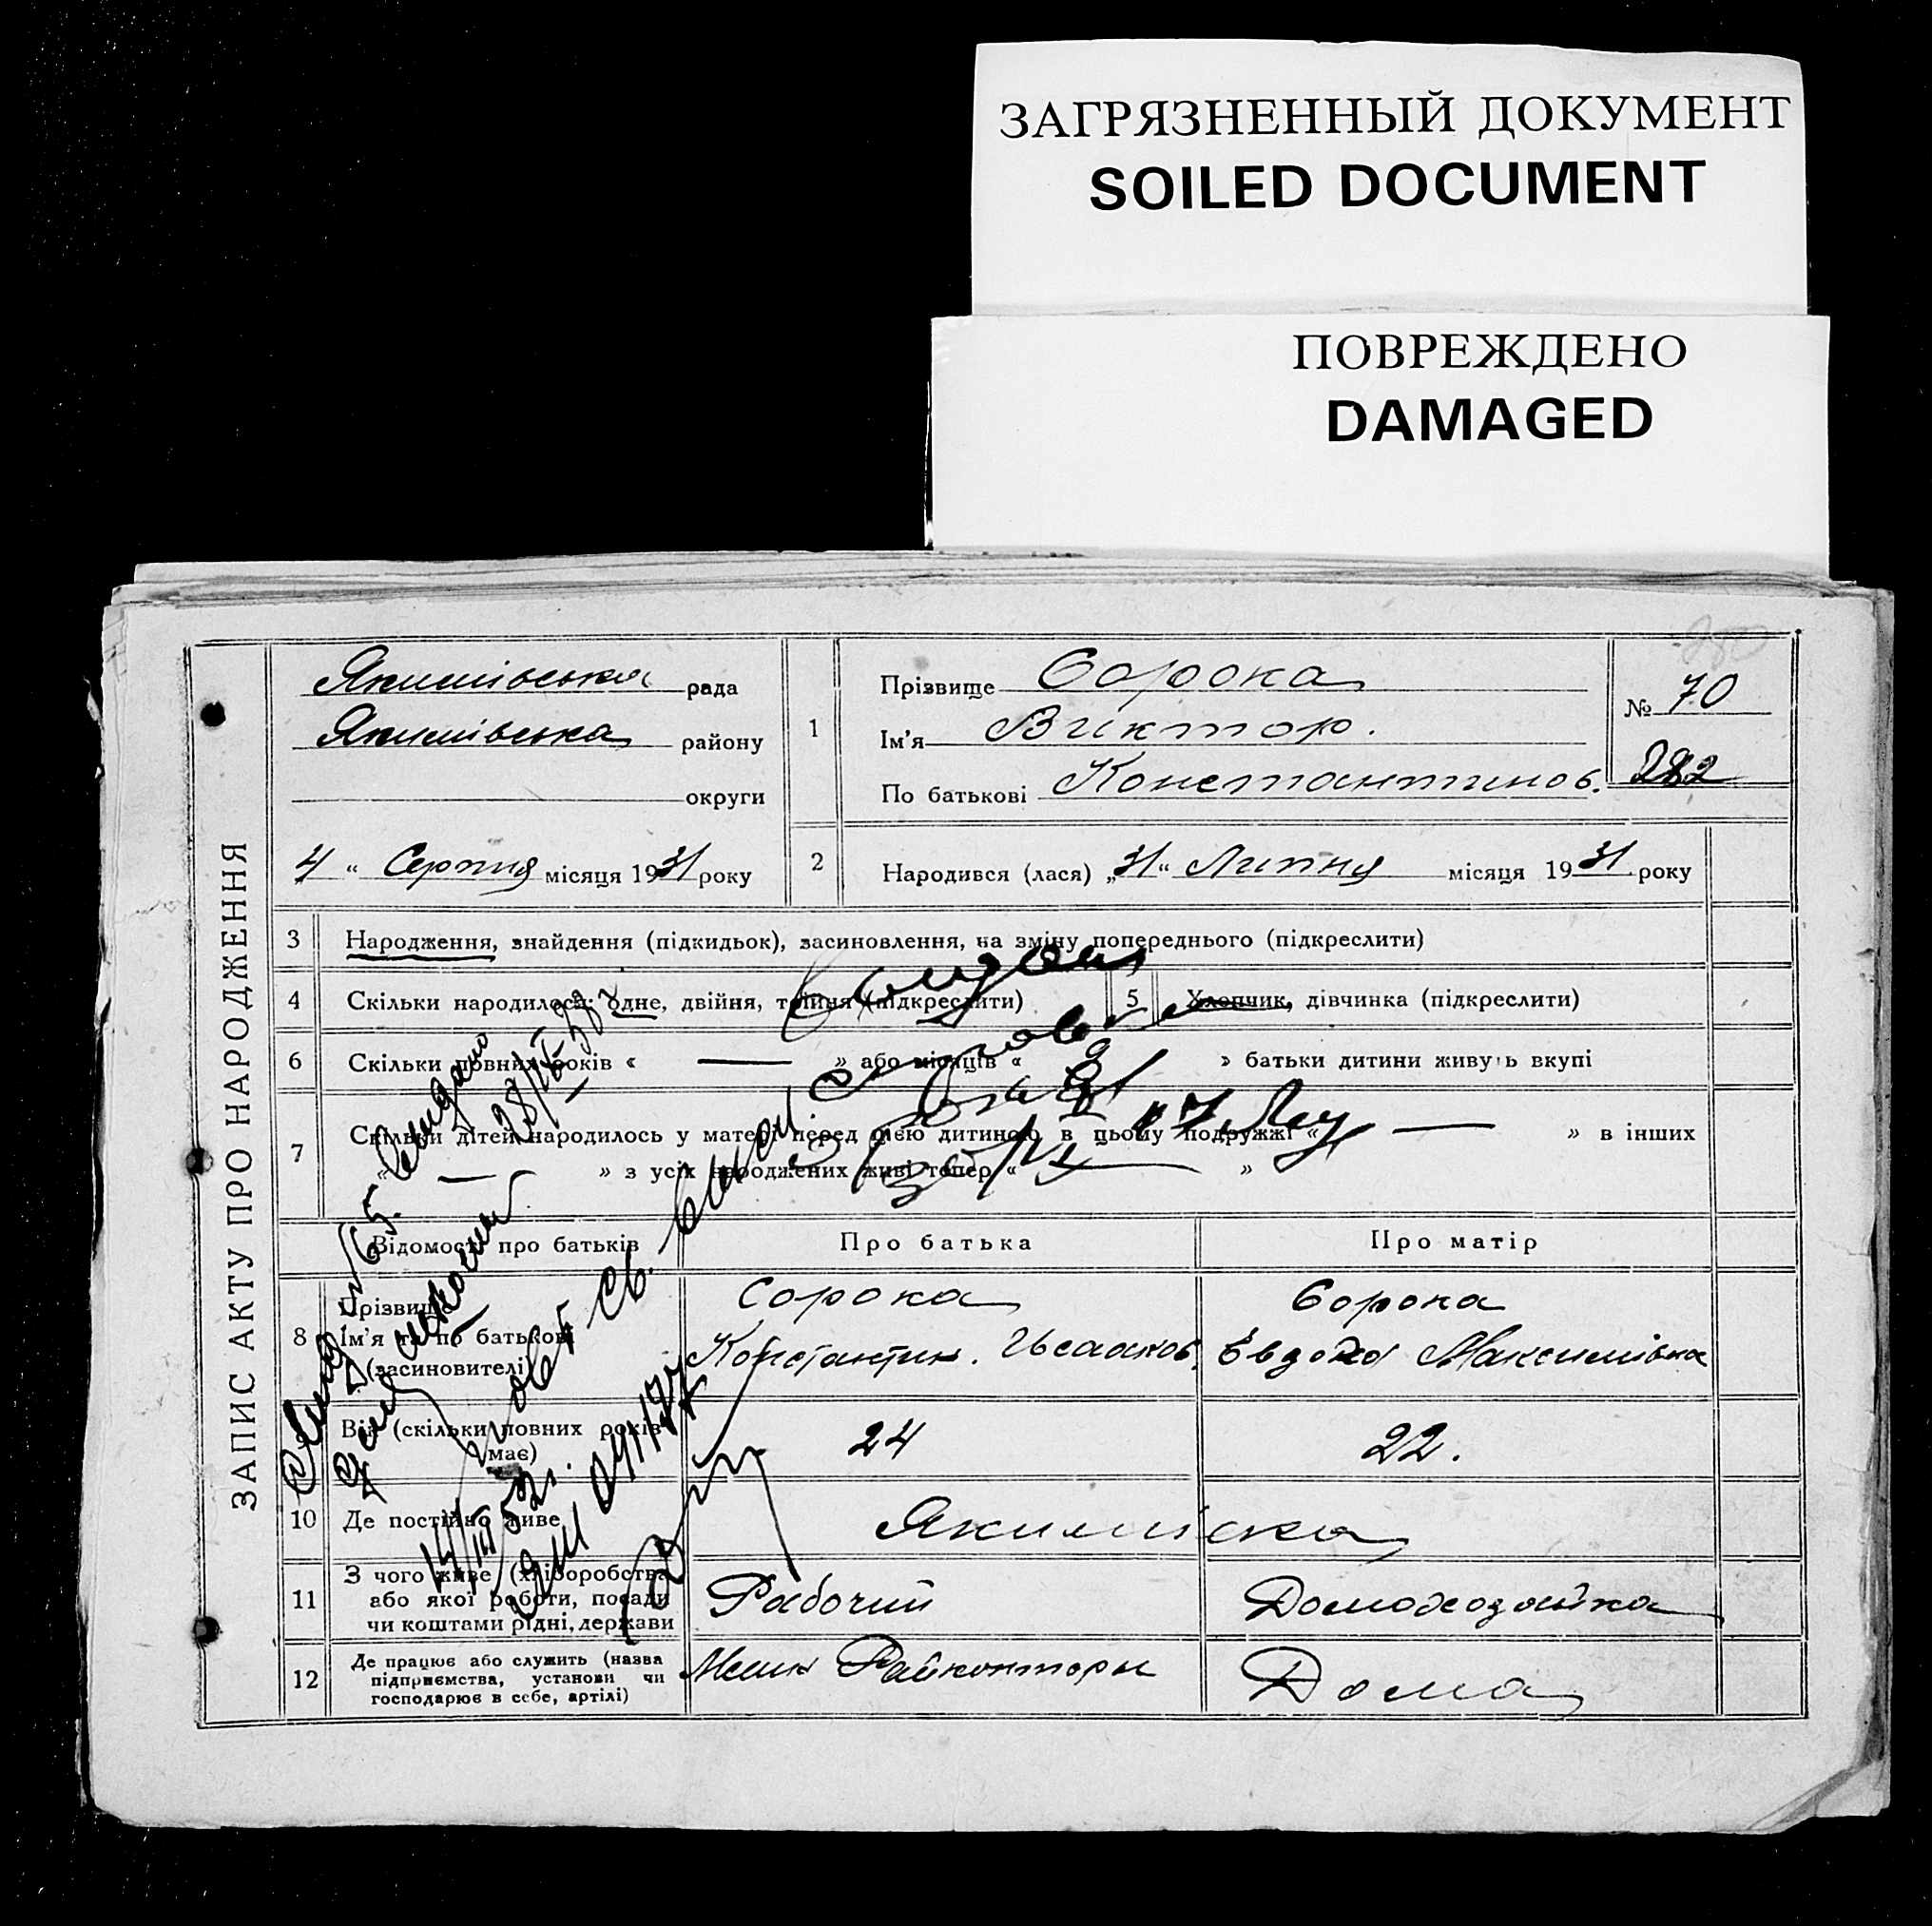 ЗАГРЯЗНЕННЫЙ ДОКУМЕНТ
SOILED DOCUMENT
ПОВРЕЖДЕНО
DAMAGED
ЗАПИС АКТУ ПРО НАРОДЖЕННЯ
Якимівська рада
Якимівська району
округи
4 " Серпня місяця 1931 року
1
Прізвище Сорока
Ім'я Виктор.
По батькові Константинов.
№ 70
282
2
Народився (лася) „31" Липня місяця 1931 року
3 Народження, знайдення (підкидьок), засиновлення, на зміну попереднього (підкреслити)
4 Скільки народилось: одне, двійня, трійня (підкреслити)
5 Хлопчик, дівчинка (підкреслити)
6 Скільки повних років « — » або місяців « 9 » батьки дитини живуть вкупі
7 Скільки дітей народилось у матері перед цією дитиною в цьому подружжі « — » в інших
« — » з усіх народжених живі тепер « — »
Видано
28/IX-38 г
Відомості про батьків Про батька Про матір
8 Прізвище
Ім'я та по батькові
(засиновителі)
Сорока
Константин. Исааков.
Сорока
Евдокія Максимівна
9 Вік (скільки повних років
має)
24 22.
10 Де постійно живе Якимівка
14/III 52 г.
11 З чого живе (хліборобства
або якої роботи, посади
чи коштами рідні, держави
Рабочий Домохозяйка
12 Де працює або служить (назва
підприємства, установи чи
господарює в себе, артілі)
Райконтори
Дома